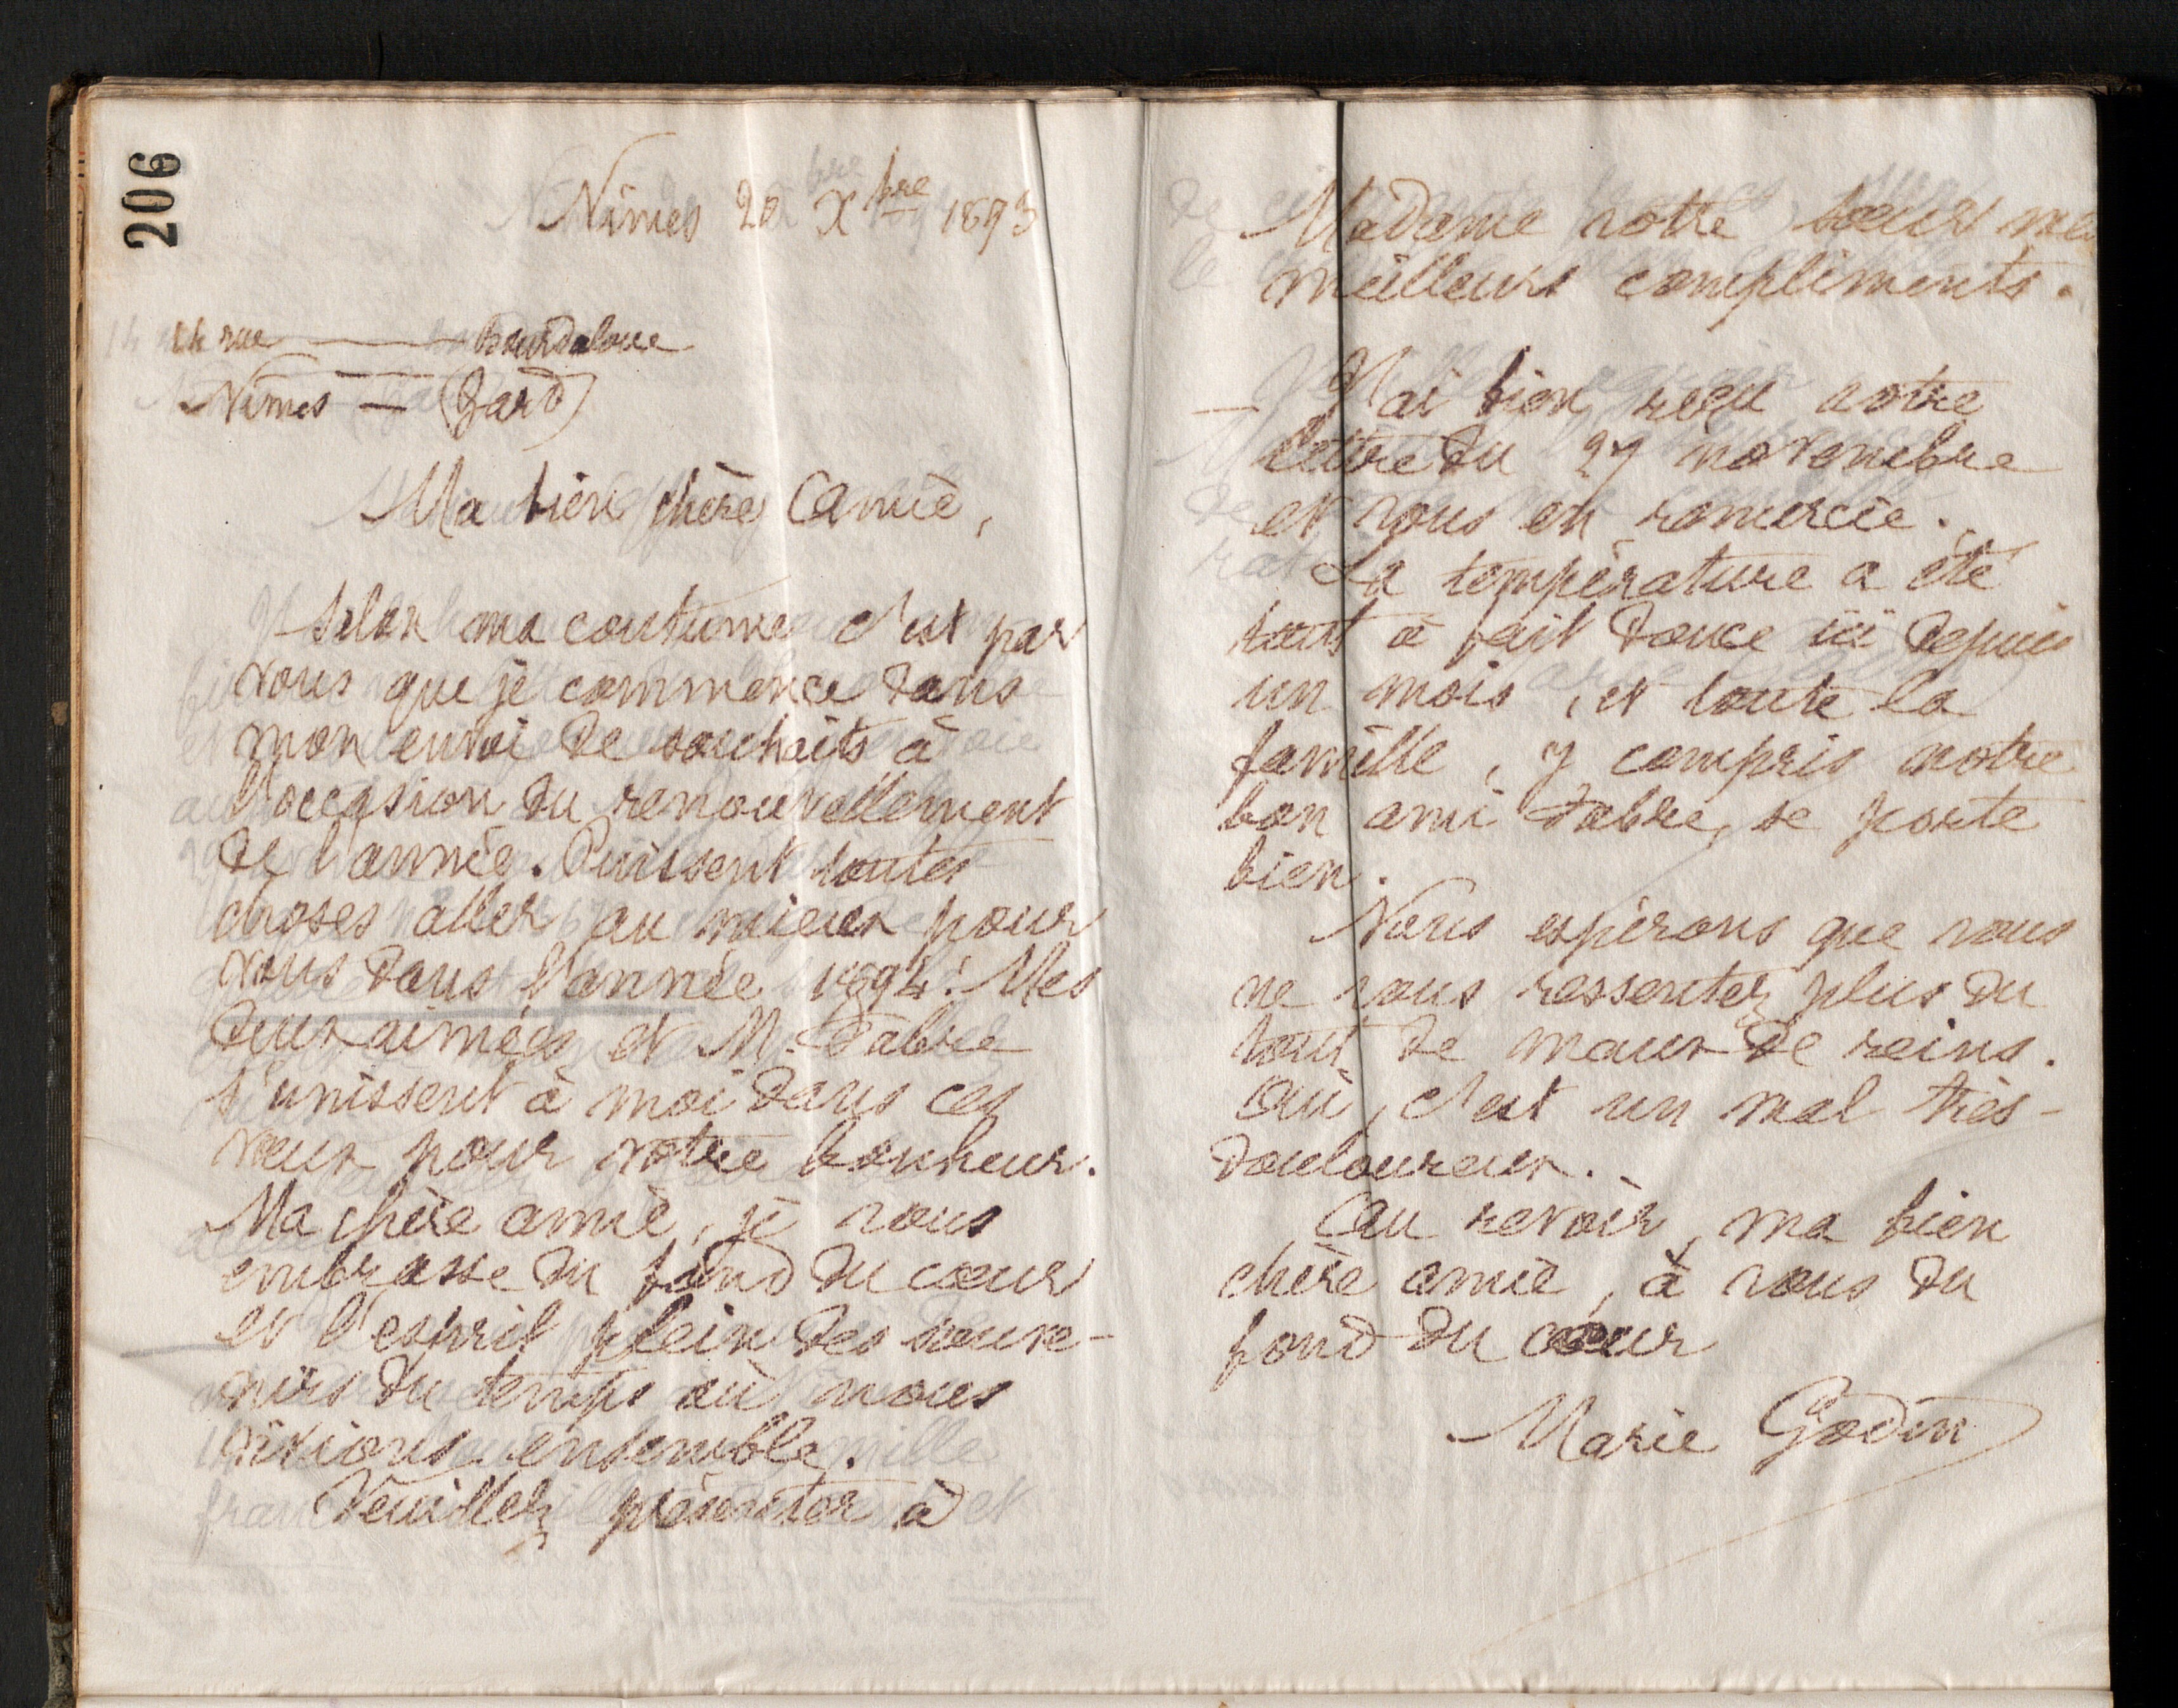 206
Nîmes 20 Xbre 1893
14 rue Bourdaloue
Nîmes — (Gard)
Ma bien chère Amie,
Selon ma coutume c'est par
vous que je commence dans
mon envoi de souhaits à
l'occasion du renouvellement
de l'année. Puissent toutes
choses aller au mieux pour
vous dans l'année 1894! Mes
deux aimées et M. Fabre
s'unissent à moi dans ces
vœux pour votre bonheur.
Ma chère amie, je vous
embrasse du fond du cœur
et l'esprit plein des souve-
nirs du temps où nous
vivions ensemble.
Veuillez présenter à
Madame votre sœur mes
meilleurs compliments.
— J'ai bien reçu votre
lettre du 27 novembre
et vous en remercie.
La température a été
tout à fait douce ici depuis
un mois, et toute la
famille, y compris notre
bon ami Fabre, se porte
bien.
Nous espérons que vous
ne vous ressentez plus du
tout de maux de reins.
Oui, c'est un mal très-
douloureux.
Au revoir, ma bien
chère amie, à vous du
fond du cœur
Marie Godin